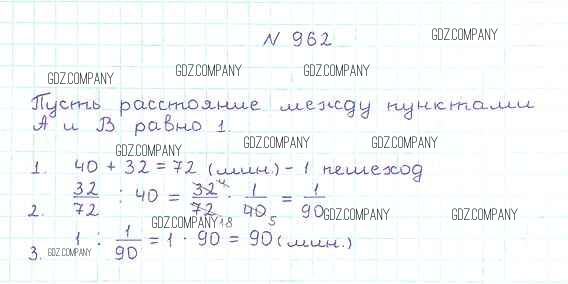 N 962
GDZ.COMPANY
GDZ.COMPANY GDZ.COMPANY GDZ.COMPANY
Пусть расстояние между пунктами
А и В равно 1.
GDZ.COMPANY GDZ.COMPANY GDZ.COMPANY
1. 40 + 32 = 72 (мин.) - 1 пешеход
2. 32/72 : 40 = 32 4/72 18 · 1/40 5 = 1/90
GDZ.COMPANY GDZ.COMPANY GDZ.COMPANY
3. 1 : 1/90 = 1 · 90 = 90 (мин.)
GDZ.COMPANY